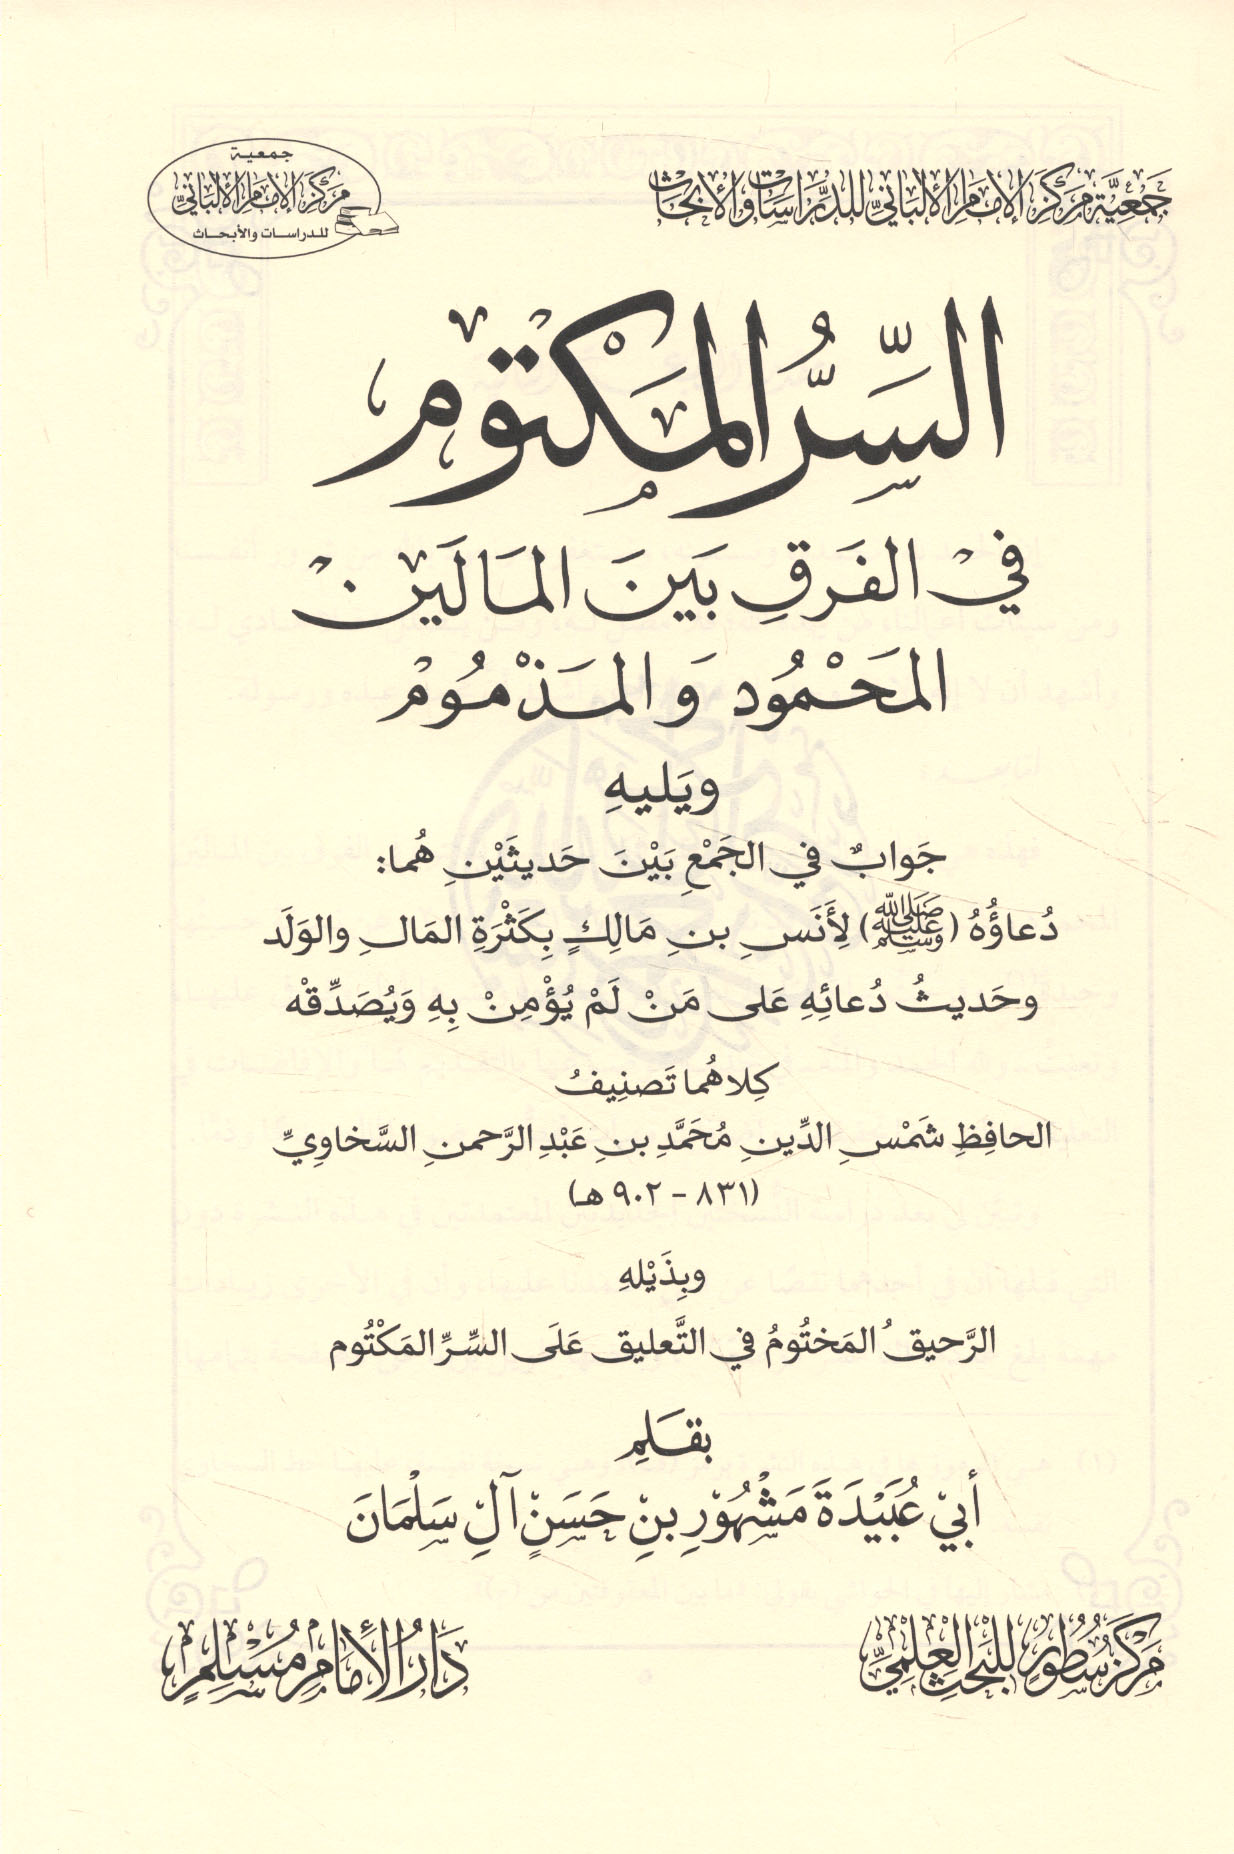 جمعية مركز الإمام الألباني للدراسات والأبحاث
جمعية
مركز الإمام الألباني
للدراسات والأبحاث
السِّرُّ المَكْتوم
فيْ الفَرَقِ بَينَ المَالَينْ
المَحْمُود وَالمَذْمُومْ
ويَليهِ
جَوابٌ في الجَمْعِ بَيْنَ حَديثَيْنِ هُما:
دُعاؤُهُ (ﷺ) لِأَنَسِ بنِ مَالِكٍ بِكَثْرَةِ المَالِ والوَلَد
وحَديثُ دُعائِهِ عَلى مَنْ لَمْ يُؤْمِنْ بِهِ وَيُصَدِّقْه
كِلاهُما تَصنِيفُ
الحافِظِ شَمْسِ الدِّينِ مُحَمَّدِ بنِ عَبْدِ الرَّحمنِ السَّخاوِيِّ
(٨٣١ - ٩٠٢ هـ)
وبِذَيْلِهِ
الرَّحيقُ المَختُومُ في التَّعليق عَلَى السِّرِّ المَكْتُوم
بقَلَمِ
أَبيْ عُبَيْدَةَ مَشْهُوْرِ بنِ حَسَنٍ آلِ سَلْمَانَ
مَركَز سُطُور للبَحث العِلمِيِّ
دَارُ الإِمَامِ مُسْلِمٍ